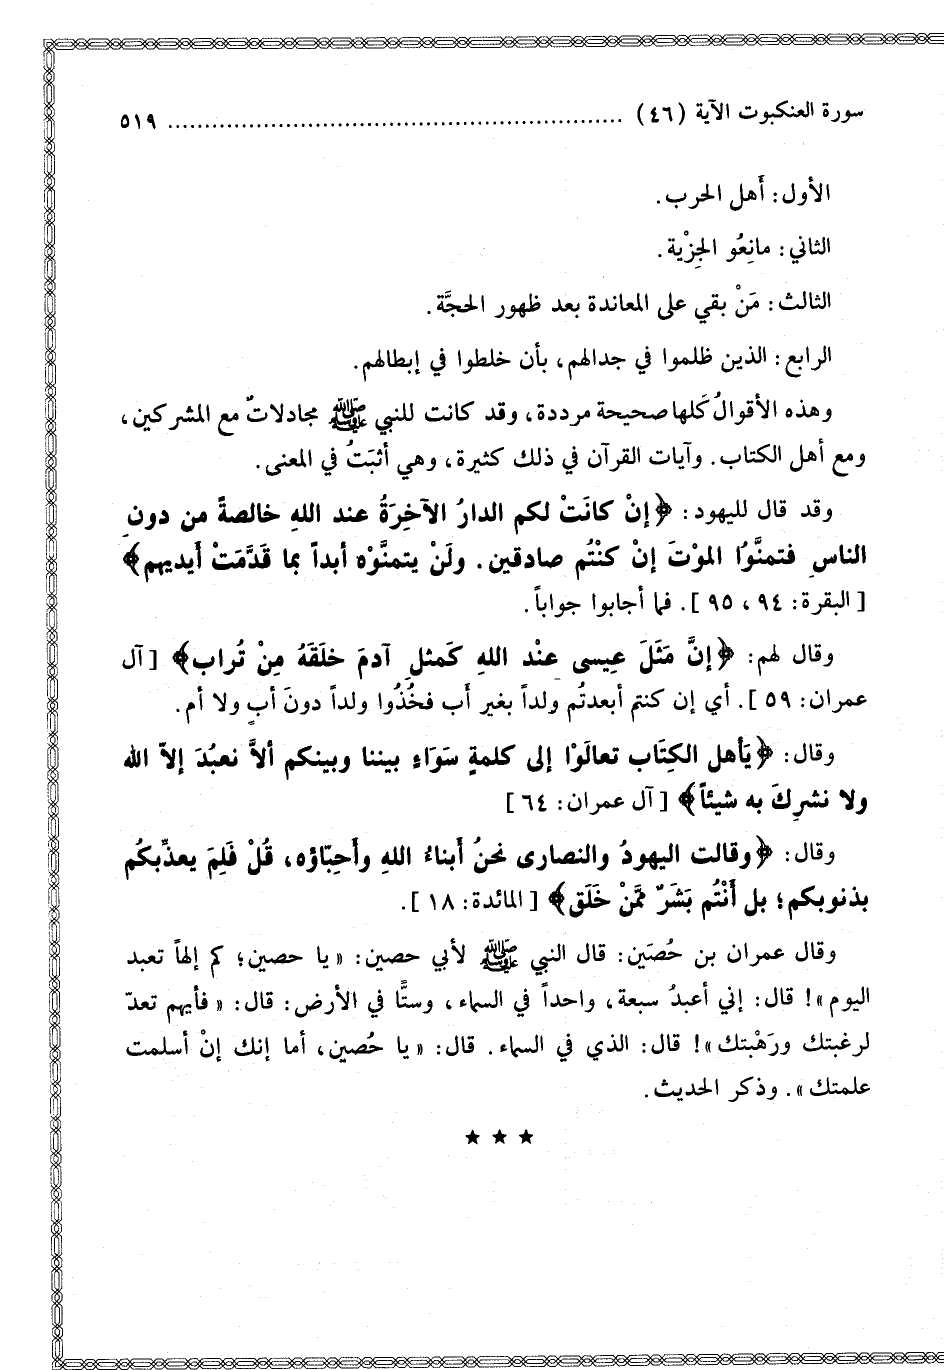 سورة العنكبوت الآية (٤٦) ........................................ ٥١٩
الأول: أَهل الحرب.
الثاني: مانِعُو الجِزْية.
الثالث: مَنْ بقي على المعاندة بعد ظهور الحجَّة.
الرابع: الذين ظلموا في جدالهم، بأن خلطوا في إبطالهم.
وهذه الأقوالُ كَلها صحيحة مرددة، وقد كانت للنبي ﷺ مجادلاتٌ مع المشركين،
ومع أهل الكتاب. وآيات القرآن في ذلك كثيرة، وهي أثبَتُ في المعنى.
وقد قال لليهود: ﴿إنْ كانَتْ لكم الدارُ الآخِرَةُ عند اللهِ خالصةً من دونِ
الناسِ فتمنَّوُا الموْتَ إنْ كنْتُم صادقين. ولَنْ يتمنَّوْه أبداً بما قَدَّمَتْ أَيديهم﴾
[البقرة: ٩٤، ٩٥]. فما أجابوا جواباً.
وقال لهم: ﴿إنَّ مَثَلَ عِيسى عنْد اللهِ كَمثلِ آدمَ خلَقَهُ مِنْ تُراب﴾ [آل
عمران: ٥٩]. أي إن كنتم أبعدتُم ولداً بغير أَب فخُذُوا ولداً دونَ أبٍ ولا أم.
وقال: ﴿يَأهل الكِتَاب تعالَوْا إلى كلمةٍ سَوَاءٍ بيننا وبينكم ألاَّ نعبُدَ إلاّ الله
ولا نشرِكَ به شيئاً﴾ [آل عمران: ٦٤]
وقال: ﴿وقالت اليهودُ والنصارى نحنُ أَبناءُ اللهِ وأَحِبّاؤه، قُلْ فَلِمَ يعذِّبكُم
بذنوبكم؛ بل أَنْتُم بَشَرٌ ممَّنْ خَلَق﴾ [المائدة: ١٨].
وقال عمران بن حُصَين: قال النبي ﷺ لأبي حصين: «يا حصين؛ كم إلهاً تعبد
اليوم»! قال: إني أعبدُ سبعة، واحداً في السماء، وستًّا في الأرض: قال: «فأيهم تعدّ
لرغبتك ورَهْبتك»! قال: الذي في السماء. قال: «يا حُصين، أما إنك إنْ أسلمت
علمتك». وذكر الحديث.
★ ★ ★